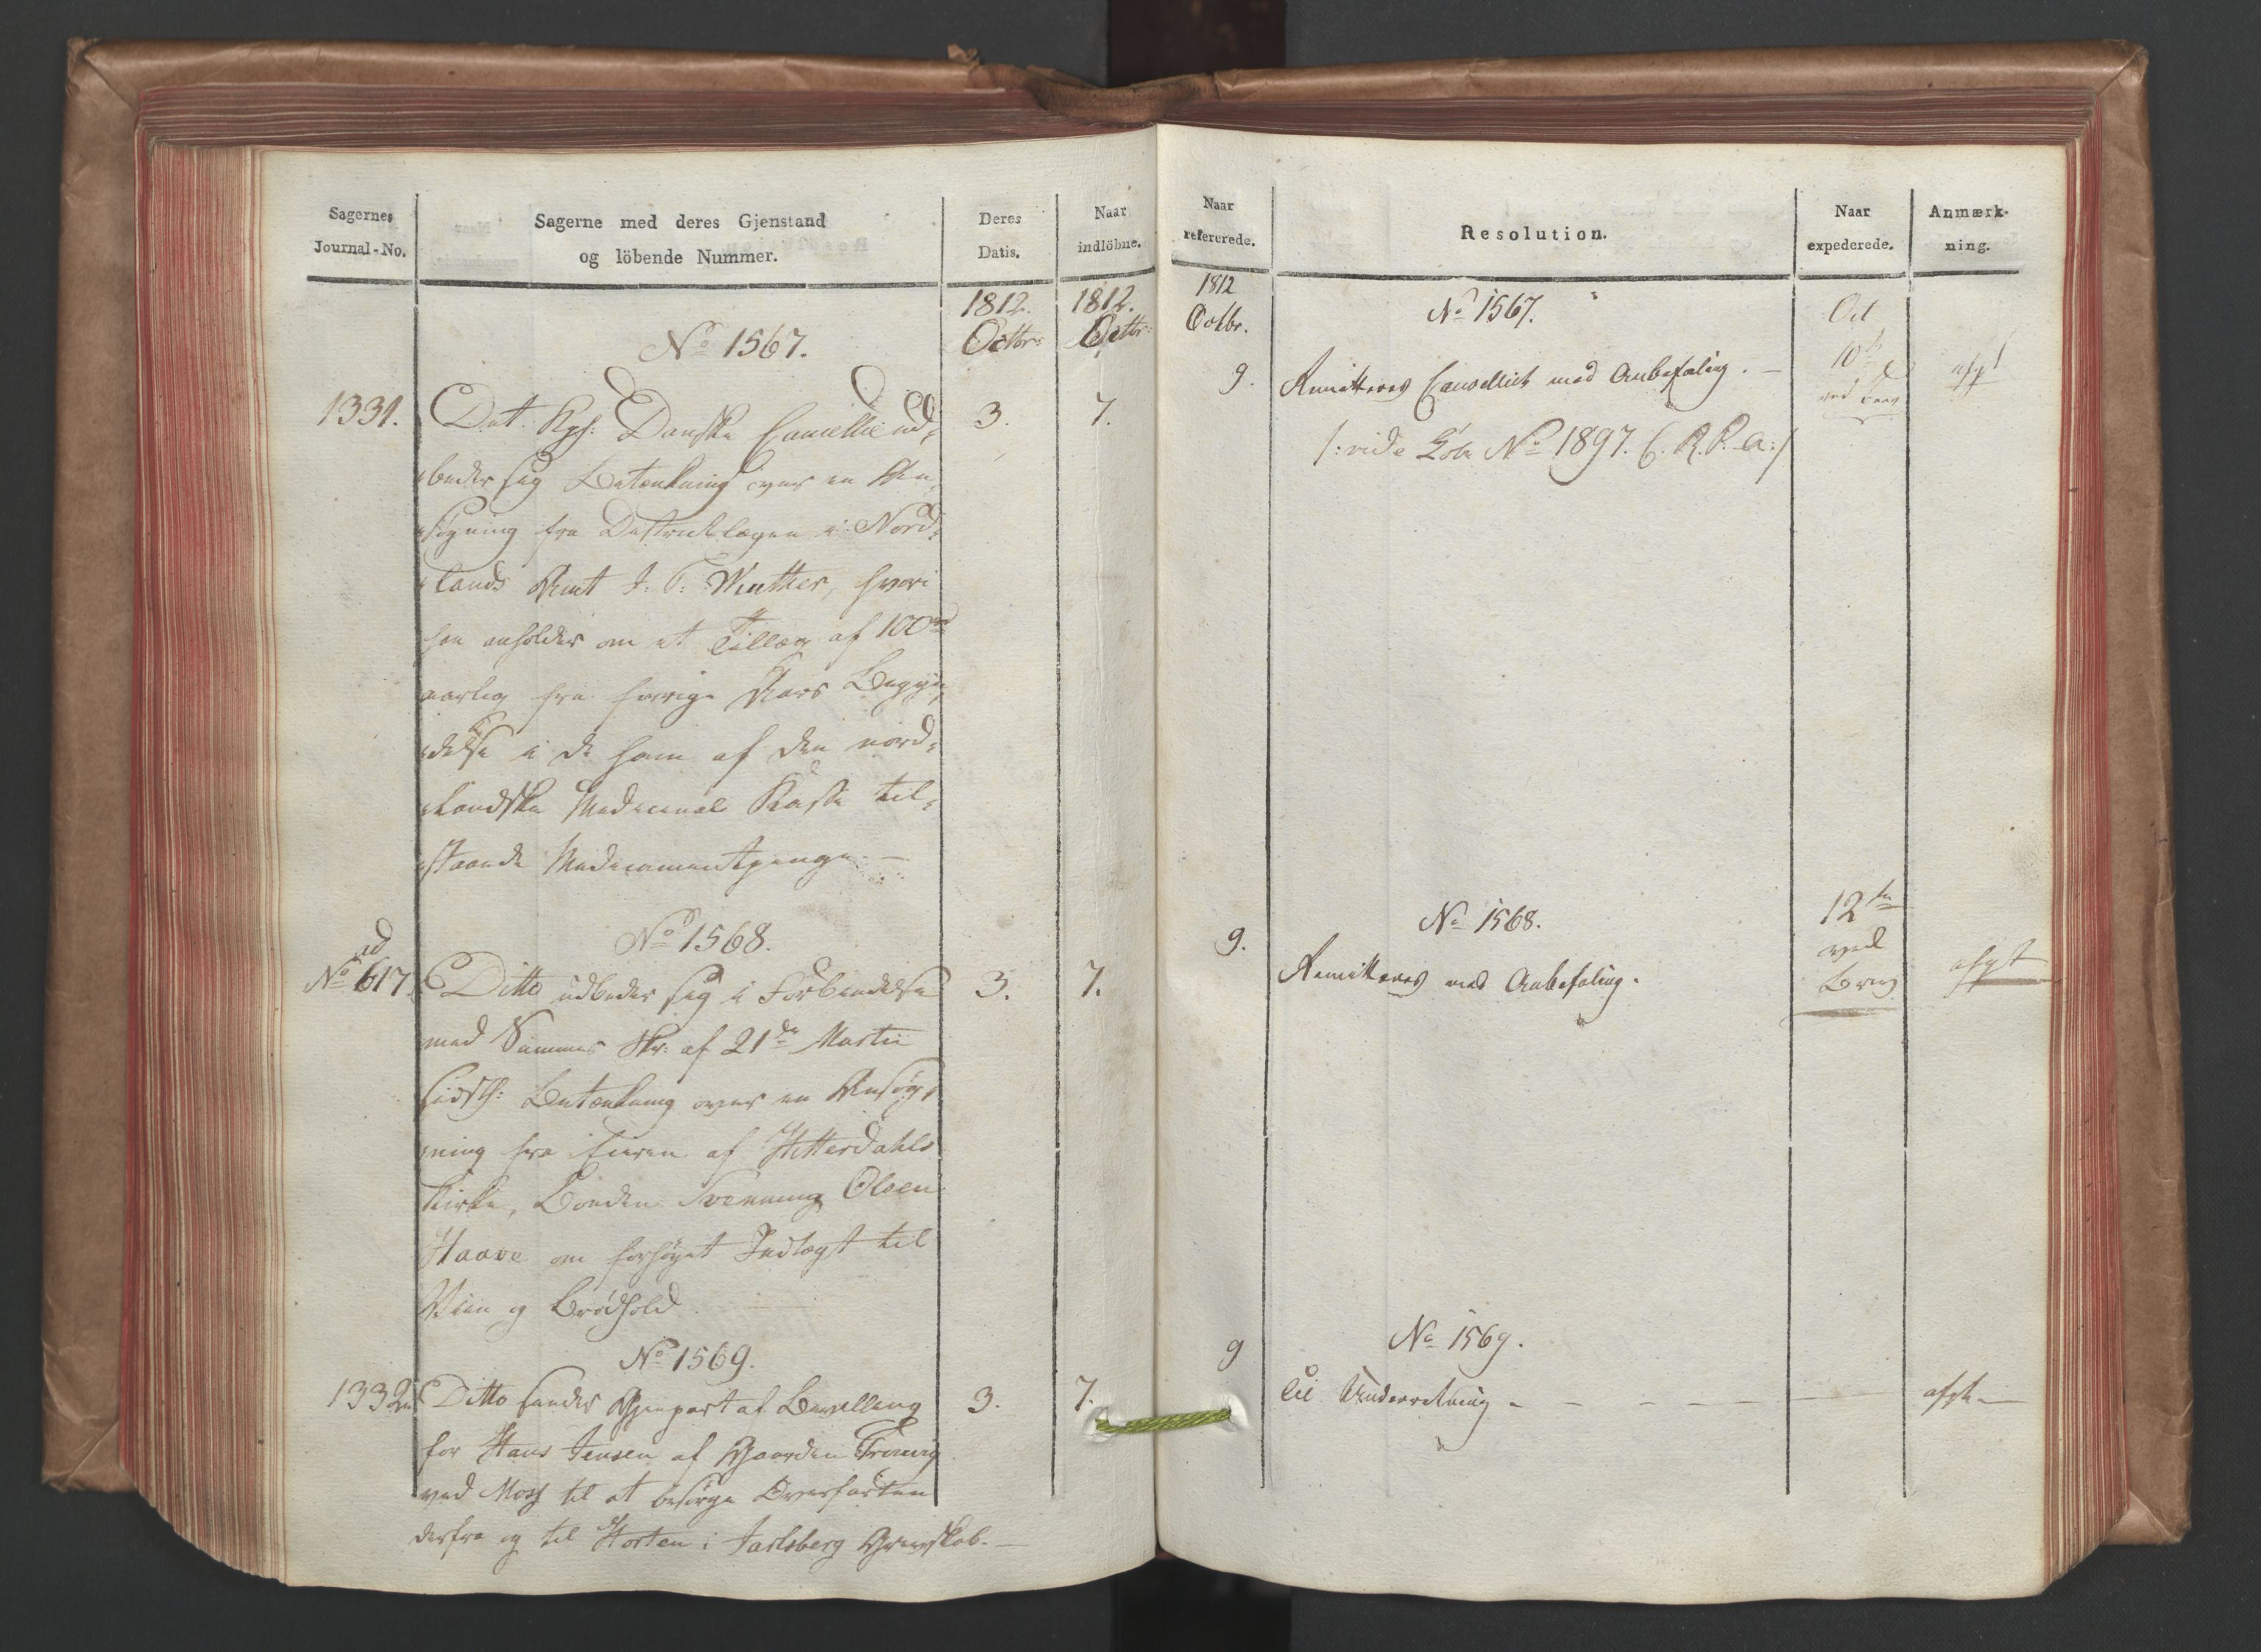 Sagernes
Journal-No.
Sagerne med deres Gjenstand
og löbende Nummer.
Deres
Datis.
Naar
indlöbne.
1812.
Octbr:
1812.
Octbr:
No 1567.
1331.
Det Kgl: Danske Cancellie ud-
3.
7.
beder sig Betænkning over en An-
søgning fra Districtlægen i Nord-
lands Amt J. F. Winther, hvori
han anholder om et Tillæg af 100 rd
aarlig fra forrige Aars Begyn-
delse i de ham af den nord-
landske Medicinal Kasse til-
staaende Medicamentpenge. —
No 1568.
ad
No 617.
Ditto udbeder sig i Forbindelse
3.
7.
med Sammes Skr: af 21de Martii
sidstl: Betænkning over en Ansøg-
ning fra Eieren af Hitterdahls
Kirke, Bonden Svenning Olsen
Haave om forhøjet Indtægt til
Viin og Brødhold
No 1569.
1332.
Ditto sender Gjenpart af Bevilling
3.
7.
for Hans Jensen af Gaarden
ved Moss til at besörge Overfarten
derfra og til Horten i Jarlsberg Grevskab. —
Naar
refererede.
Resolution.
Naar
expederede.
Anmærk-
ning.
1812
Octbr.
No 1567.
Oct
9.
Remitteres Cancelliet med Anbefaling. —
10de
afgt
/: vide Löbe No 1897. C. R. P. A :/
No 1568.
12te
9.
ved
Remitteres med Anbefaling.
Brev
afgt
No 1569.
9
Til Underretning - - - - -
afgt. —